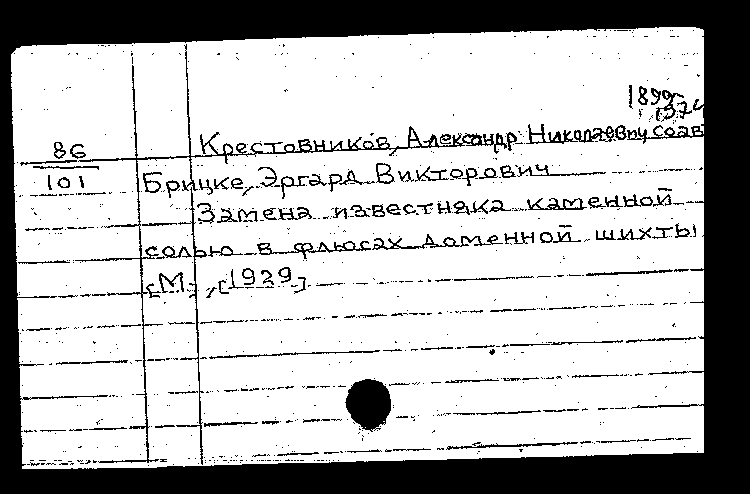 1899-
1974
86
Крестовников, Александр Николаевич соав
101
Брицке, Эргард Викторович
Замена известняка каменной
солью в флюсах доменной шихты
[М], [1929]